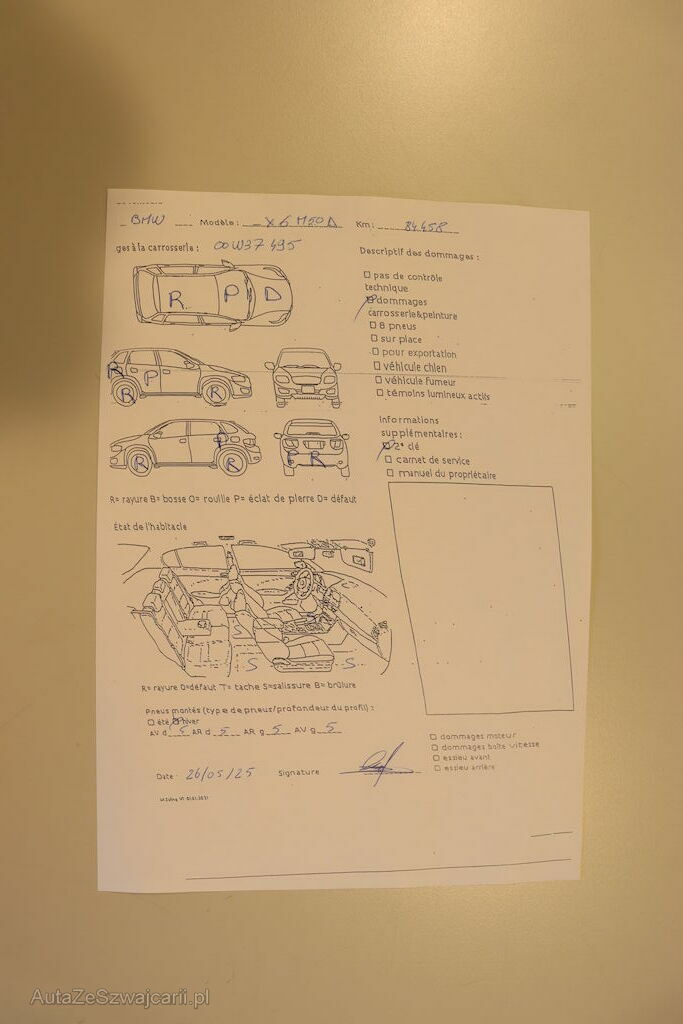 BMW Modèle : X6 M50D Km : 84458
ges à la carrosserie : 00W37495
Descriptif des dommages :
R P D
pas de contrôle
technique
dommages
carrosserie&peinture
8 pneus
sur place
pour exportation
véhicule chien
véhicule fumeur
témoins lumineux actifs
R P B R
R P R P R
Informations
supplémentaires :
2ᵉ clé
carnet de service
manuel du propriétaire
R= rayure B= bosse O= rouille P= éclat de pierre D= défaut
État de l'habitacle
S S S
R= rayure D=défaut T= tache S=salissure B= brûlure
Pneus montés (type de pneus/profondeur du profil) :
été hiver
AV d 5 AR d 5 AR g 5 AV g 5
dommages moteur
dommages boîte vitesse
essieu avant
essieu arrière
Date 26/05/25 Signature
AutaZeSzwajcarii.pl